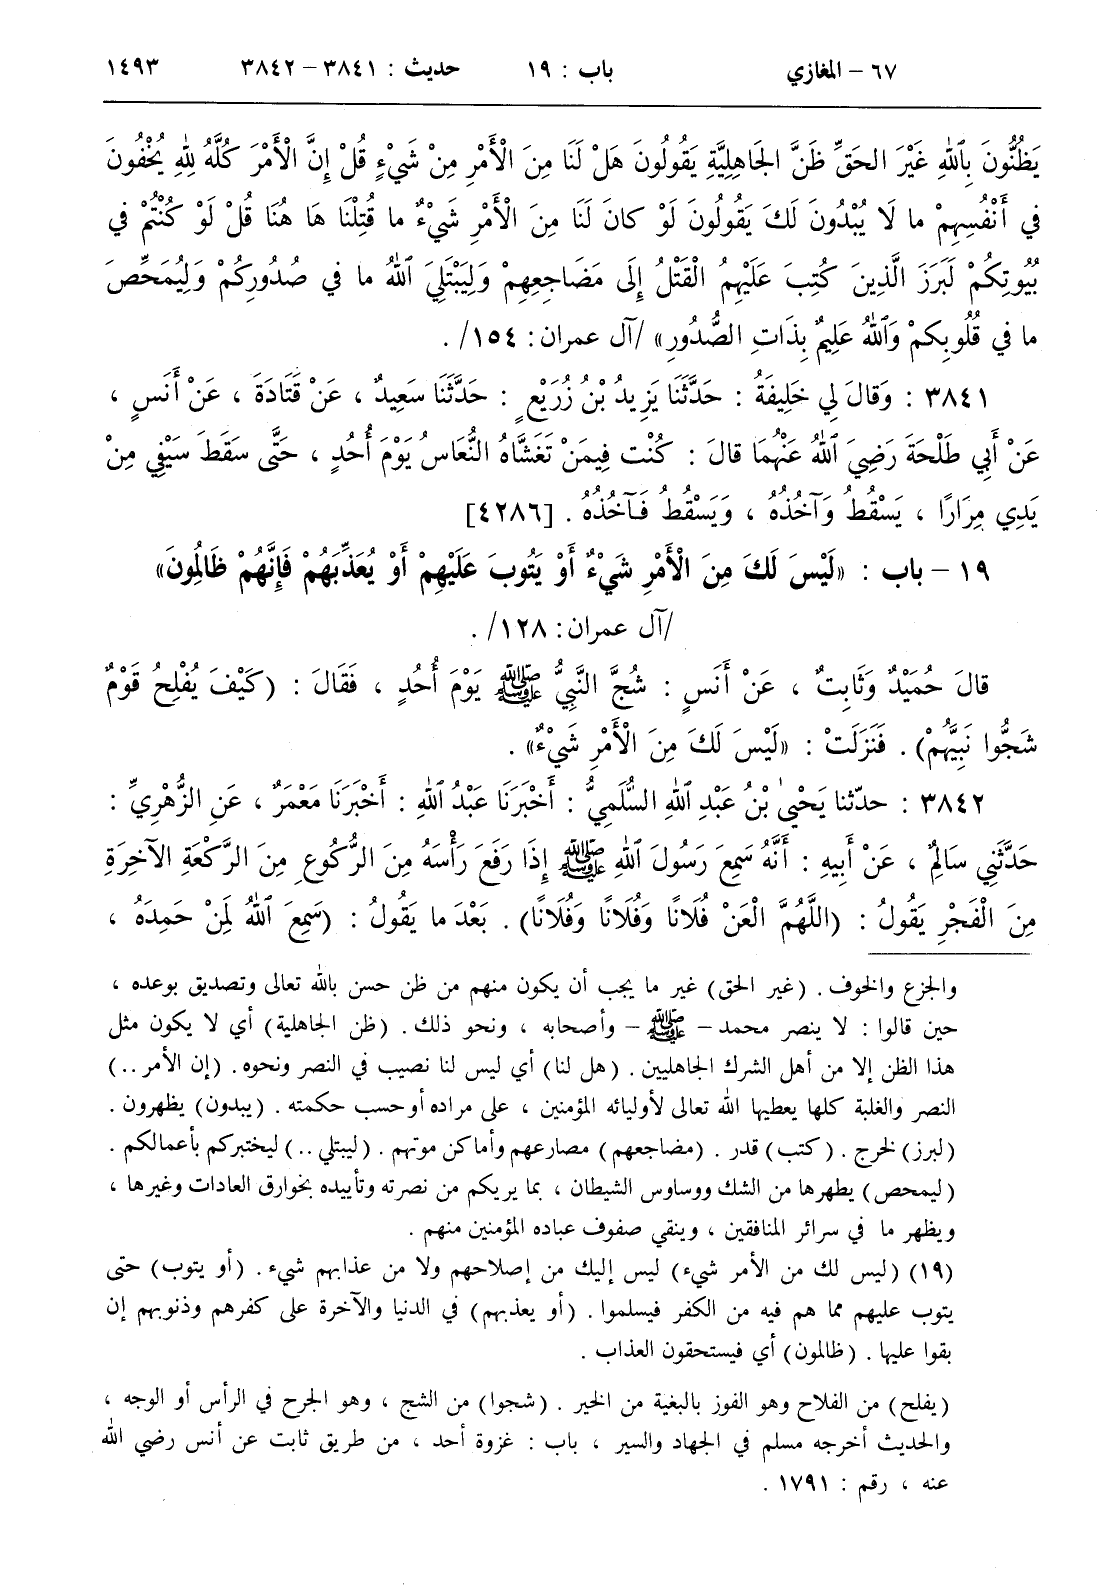 ٦٧ – المغازي باب : ١٩ حديث : ٣٨٤١ – ٣٨٤٢ ١٤٩٣
يَظُنُّونَ بِٱللهِ غَيْرَ الحَقِّ ظَنَّ الجَاهِلِيَّةِ يَقُولُونَ هَلْ لَنَا مِنَ الْأَمْرِ مِنْ شَيْءٍ قُلْ إِنَّ الْأَمْرَ كُلَّهُ لِلهِ يُخْفُونَ
في أَنْفُسِهِمْ ما لَا يُبْدُونَ لَكَ يَقُولُونَ لَوْ كانَ لَنَا مِنَ الْأَمْرِ شَيْءٌ ما قُتِلْنَا هَا هُنَا قُلْ لَوْ كُنْتُمْ في
بُيُوتِكُمْ لَبَرَزَ الَّذِينَ كُتِبَ عَلَيْهِمُ الْقَتْلُ إِلَى مَضَاجِعِهِمْ وَلِيَبْتَلِيَ ٱللهُ ما في صُدُورِكُمْ وَلِيُمَحِّصَ
ما في قُلُوبِكُمْ وَٱللهُ عَلِيمٌ بِذَاتِ الصُّدُورِ» /آل عمران : ١٥٤/ .
٣٨٤١ : وَقالَ لِي خَلِيفَةُ : حَدَّثَنَا يَزِيدُ بْنُ زُرَيْعٍ : حَدَّثَنَا سَعِيدٌ ، عَنْ قَتَادَةَ ، عَنْ أَنَسٍ ،
عَنْ أَبِي طَلْحَةَ رَضِيَ ٱللهُ عَنْهُمَا قالَ : كُنْت فِيمَنْ تَغَشَّاهُ النُّعَاسُ يَوْمَ أُحُدٍ ، حَتَّى سَقَطَ سَيْفِي مِنْ
يَدِي مِرَارًا ، يَسْقُطُ وَآخُذُهُ ، وَيَسْقُطُ فَآخُذُهُ . [٤٢٨٦]
١٩ – باب : «لَيْسَ لَكَ مِنَ الْأَمْرِ شَيْءٌ أَوْ يَتُوبَ عَلَيْهِمْ أَوْ يُعَذِّبَهُمْ فَإِنَّهُمْ ظَالِمُونَ»
/آل عمران : ١٢٨/ .
قالَ حُمَيْدٌ وَثَابِتٌ ، عَنْ أَنَسٍ : شُجَّ النَّبِيُّ ﷺ يَوْمَ أُحُدٍ ، فَقَالَ : (كَيْفَ يُفْلِحُ قَوْمٌ
شَجُّوا نَبِيَّهُمْ) . فَنَزَلَتْ : «لَيْسَ لَكَ مِنَ الْأَمْرِ شَيْءٌ» .
٣٨٤٢ : حدّثنا يَحْيىٰ بْنُ عَبْدِ ٱللهِ السُّلَمِيُّ : أَخْبَرَنَا عَبْدُ ٱللهِ : أَخْبَرَنَا مَعْمَرٌ ، عَنِ الزُّهْرِيِّ :
حَدَّثَنِي سَالِمٌ ، عَنْ أَبِيهِ : أَنَّهُ سَمِعَ رَسُولَ ٱللهِ ﷺ إِذَا رَفَعَ رَأْسَهُ مِنَ الرُّكُوعِ مِنَ الرَّكْعَةِ الآخِرَةِ
مِنَ الْفَجْرِ يَقُولُ : (اللَّهُمَّ الْعَنْ فُلَانًا وَفُلَانًا وَفُلَانًا) . بَعْدَ ما يَقُولُ : (سَمِعَ ٱللهُ لِمَنْ حَمِدَهُ ،
والجزع والخوف . (غير الحق) غير ما يجب أن يكون منهم من ظن حسن بالله تعالى وتصديق بوعده ،
حين قالوا : لا ينصر محمد – ﷺ – وأصحابه ، ونحو ذلك . (ظن الجاهلية) أي لا يكون مثل
هذا الظن إلا من أهل الشرك الجاهليين . (هل لنا) أي ليس لنا نصيب في النصر ونحوه . (إن الأمر ..)
النصر والغلبة كلها يعطيها الله تعالى لأوليائه المؤمنين ، على مراده أو حسب حكمته . (يبدون) يظهرون .
(لبرز) لخرج . (كتب) قدر . (مضاجعهم) مصارعهم وأماكن موتهم . (ليبتلي ..) ليختبركم بأعمالكم .
(ليمحص) يطهرها من الشك ووساوس الشيطان ، بما يريكم من نصرته وتأييده بخوارق العادات وغيرها ،
ويظهر ما في سرائر المنافقين ، وينقي صفوف عباده المؤمنين منهم .
(١٩) (ليس لك من الأمر شيء) ليس إليك من إصلاحهم ولا من عذابهم شيء . (أو يتوب) حتى
يتوب عليهم مما هم فيه من الكفر فيسلموا . (أو يعذبهم) في الدنيا والآخرة على كفرهم وذنوبهم إن
بقوا عليها . (ظالمون) أي فيستحقون العذاب .
(يفلح) من الفلاح وهو الفوز بالبغية من الخير . (شجوا) من الشج ، وهو الجرح في الرأس أو الوجه ،
والحديث أخرجه مسلم في الجهاد والسير ، باب : غزوة أحد ، من طريق ثابت عن أنس رضي الله
عنه ، رقم : ١٧٩١ .